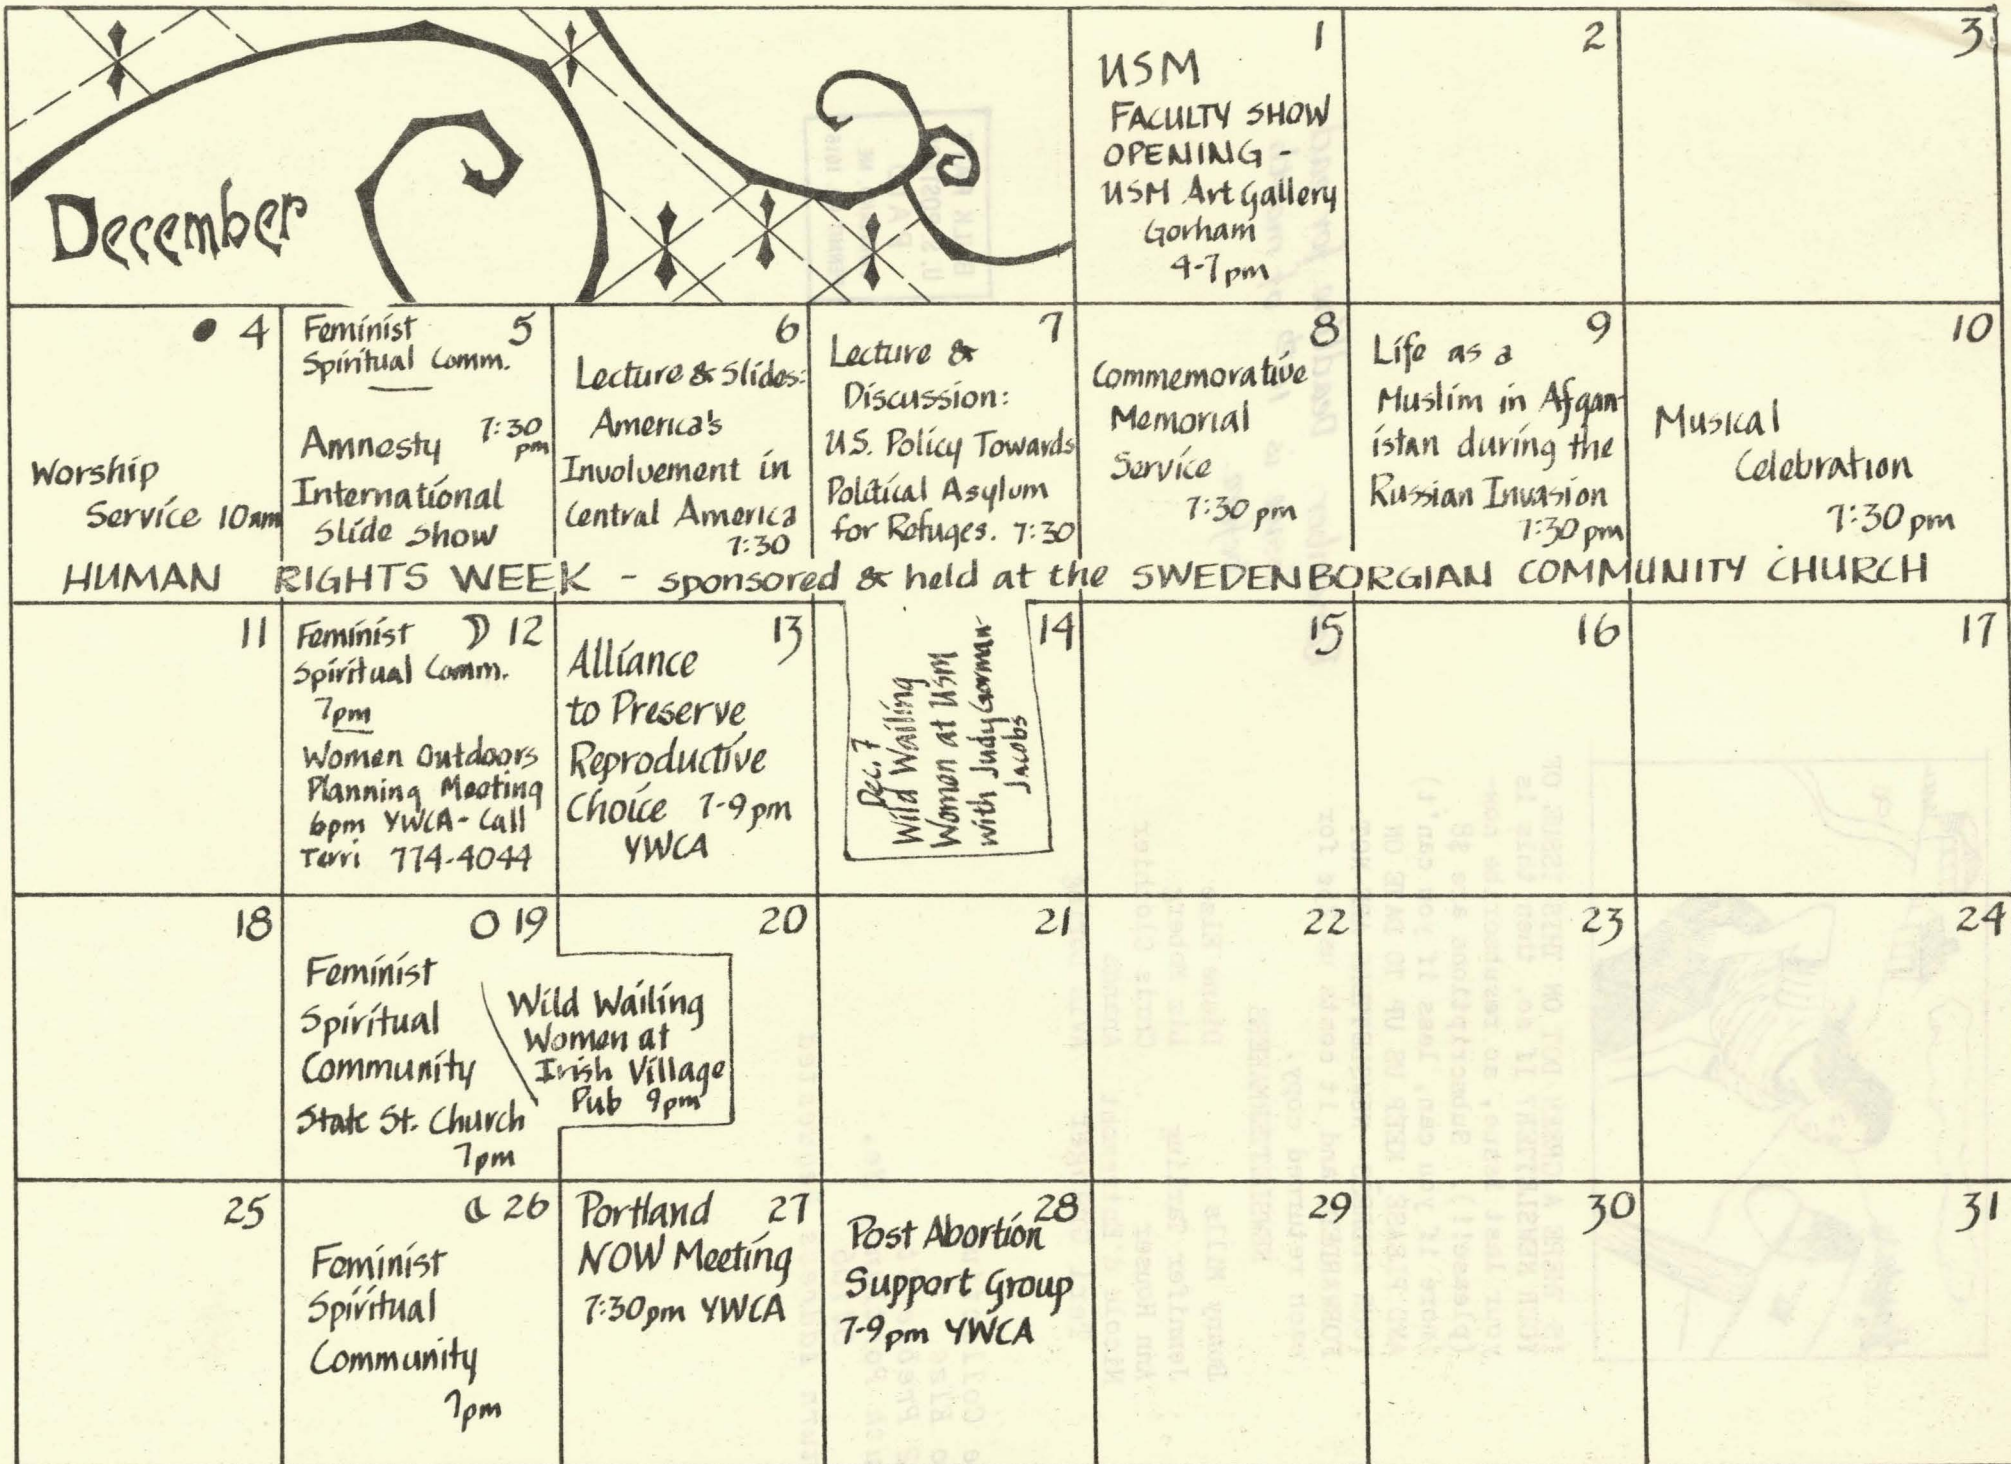 December
1
USM
FACULTY SHOW
OPENING -
USM Art Gallery
Gorham
4-7pm
2
3
4
Worship
Service 10am
5
Feminist
Spiritual Comm.
Amnesty 7:30 pm
International
Slide Show
6
Lecture & Slides:
America's
Involvement in
Central America
7:30
7
Lecture &
Discussion:
U.S. Policy Towards
Political Asylum
for Refuges. 7:30
8
Commemorative
Memorial
Service
7:30 pm
9
Life as a
Muslim in Afgan-
istan during the
Russian Invasion
7:30 pm
10
Musical
Celebration
7:30 pm
HUMAN RIGHTS WEEK - sponsored & held at the SWEDENBORGIAN COMMUNITY CHURCH
11
12
Feminist
Spiritual Comm.
7pm
Women Outdoors
Planning Meeting
6pm YWCA - Call
Terri 774-4044
13
Alliance
to Preserve
Reproductive
Choice 7-9 pm
YWCA
14
Dec. 7
Wild Wailing
Women at USM
with Judy Gorman-
Jacobs
15
16
17
18
19
Feminist
Spiritual
Community
State St. Church
7pm
Wild Wailing
Women at
Irish Village
Pub 9pm
20
21
22
23
24
25
26
Feminist
Spiritual
Community
7pm
27
Portland
NOW Meeting
7:30pm YWCA
28
Post Abortion
Support Group
7-9pm YWCA
29
30
31